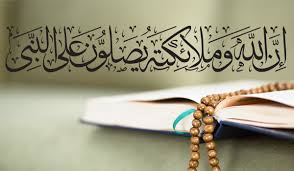 إِنَّ اللهَ وَمَلَائِكَتَهُ يُصَلُّونَ عَلَى النَّبِي